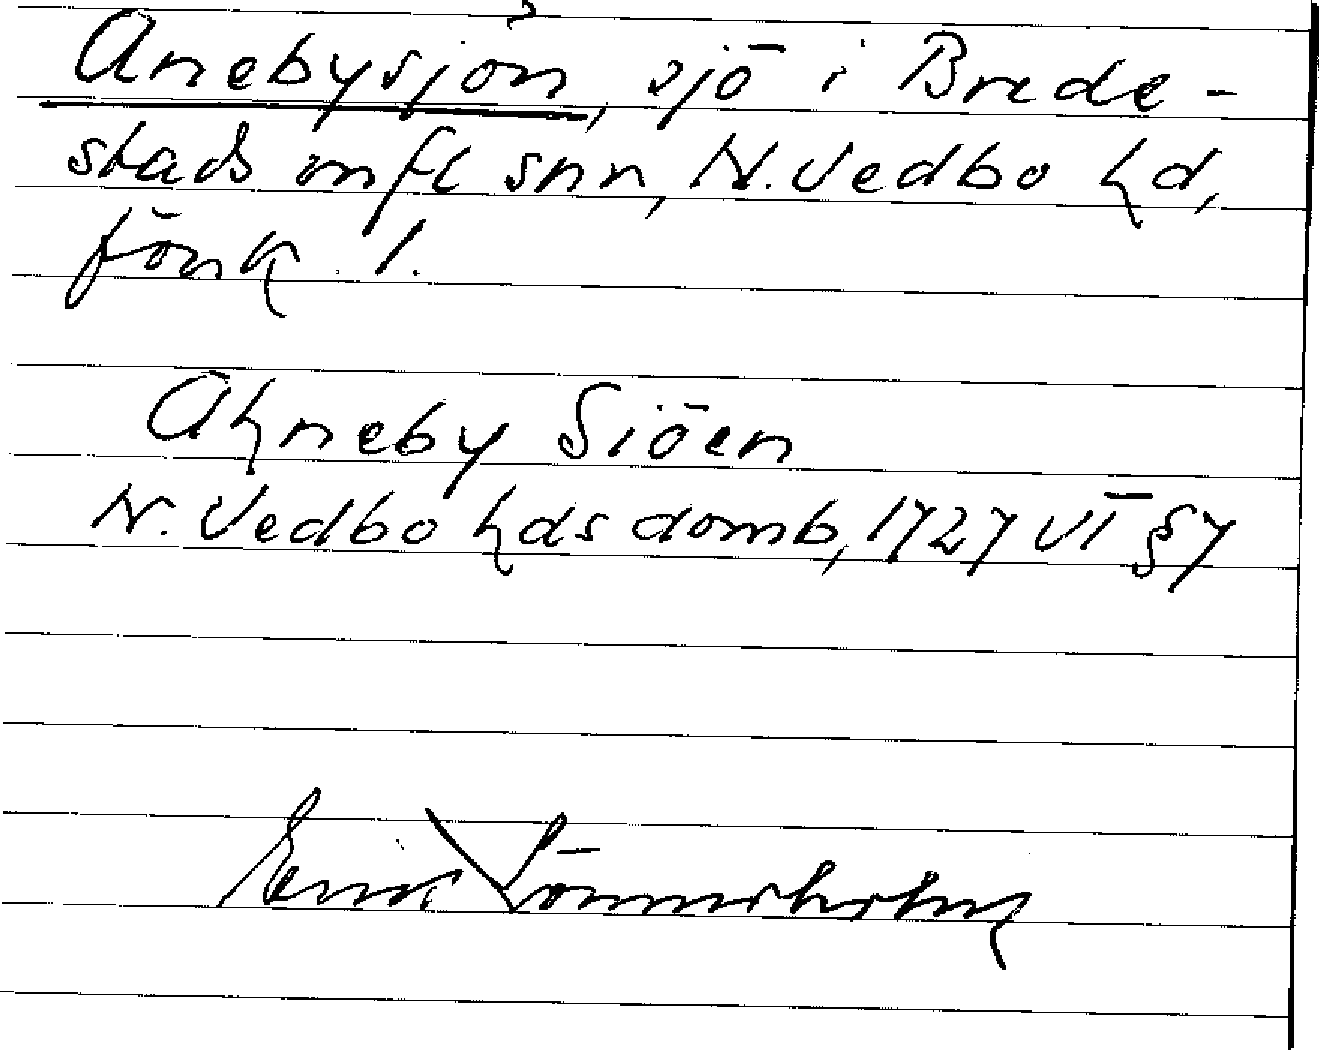 Anebysjön, sjö i Brede-
stads mfl snn, N. Vedbo hd,
Jönk. l.
Ahneby Siöen
N. Vedbo hds domb, 1727 VI § 7
Erik Lönnerholm